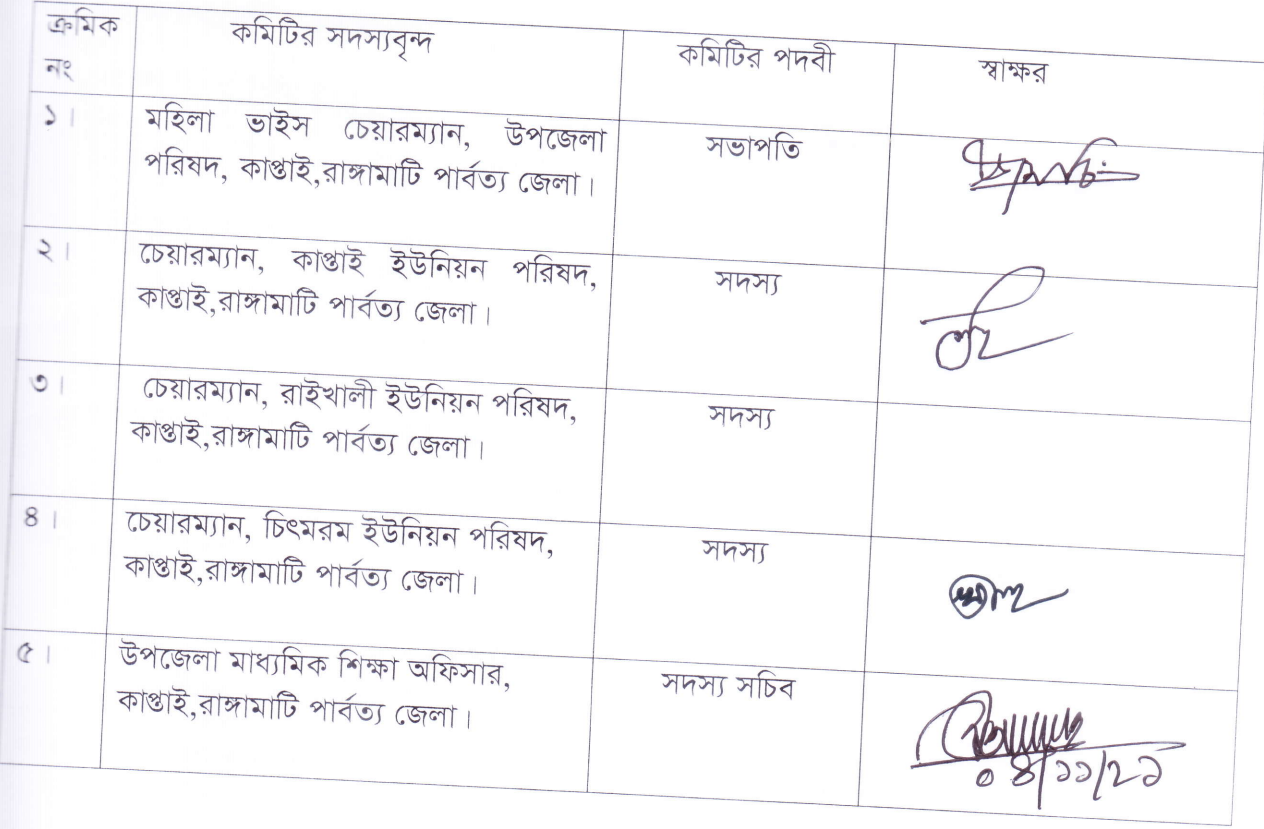 ক্রমিক নং কমিটির সদস্যবৃন্দ কমিটির পদবী স্বাক্ষর
১। মহিলা ভাইস চেয়ারম্যান, উপজেলা সভাপতি
পরিষদ, কাপ্তাই,রাঙ্গামাটি পার্বত্য জেলা।
২। চেয়ারম্যান, কাপ্তাই ইউনিয়ন পরিষদ, সদস্য
কাপ্তাই,রাঙ্গামাটি পার্বত্য জেলা।
৩। চেয়ারম্যান, রাইখালী ইউনিয়ন পরিষদ, সদস্য
কাপ্তাই,রাঙ্গামাটি পার্বত্য জেলা।
৪। চেয়ারম্যান, চিৎমরম ইউনিয়ন পরিষদ, সদস্য
কাপ্তাই,রাঙ্গামাটি পার্বত্য জেলা।
৫। উপজেলা মাধ্যমিক শিক্ষা অফিসার, সদস্য সচিব
কাপ্তাই,রাঙ্গামাটি পার্বত্য জেলা।
০৪/১১/২১